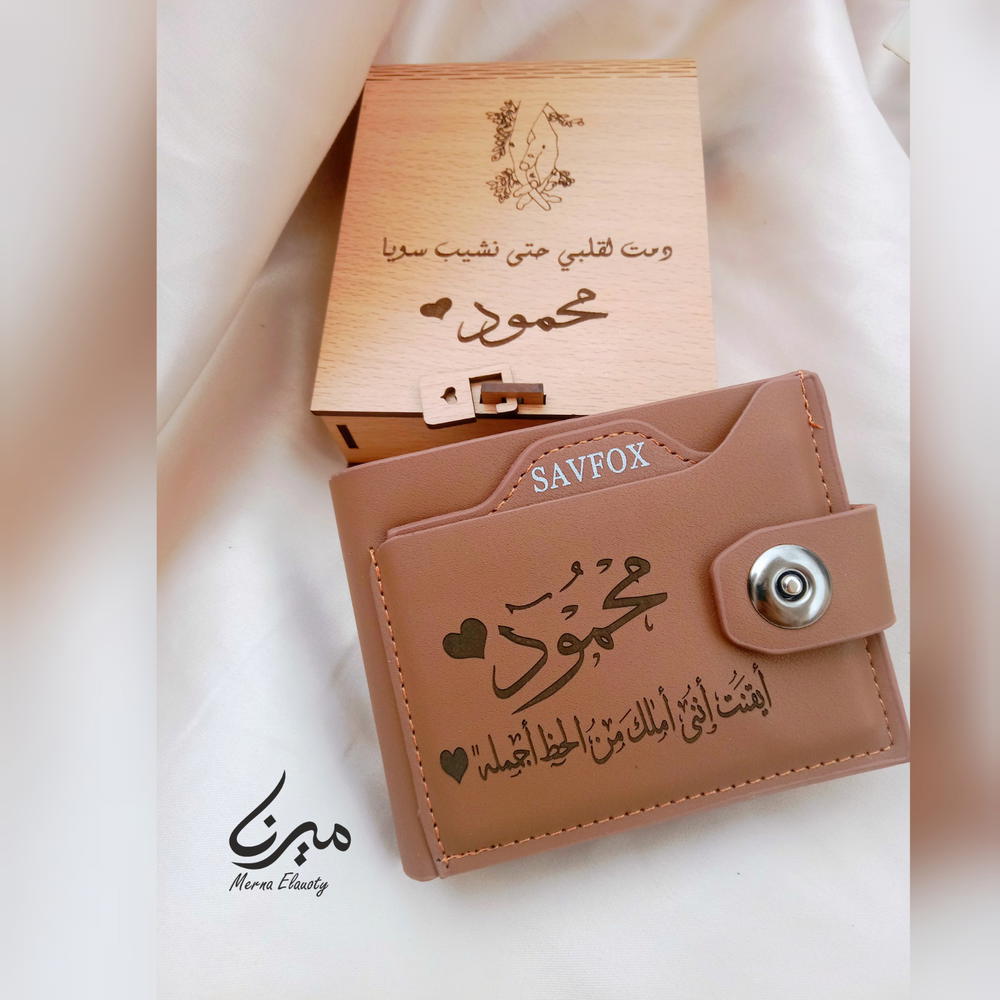 دمت لقلبي حتى نشيب سويا
محمود
SAVFOX
محمُود
أيقنَت أننى أملك مَن الحظ أجمله"
ميرنا
Merna Elauoty